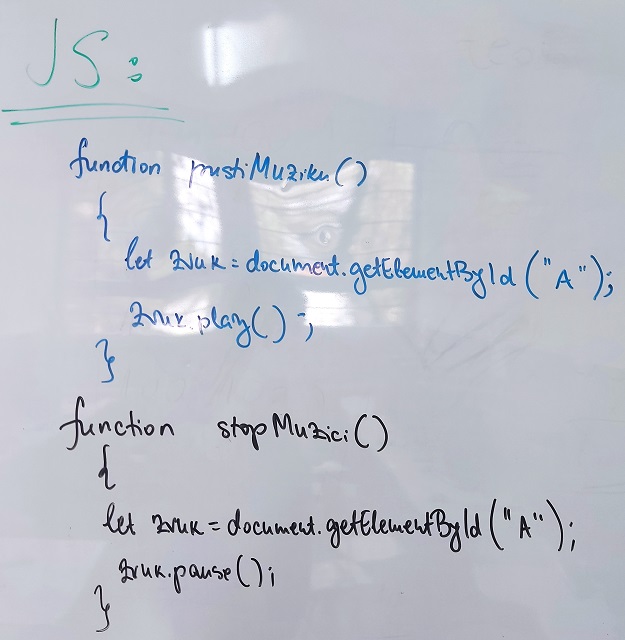 JS:
function pustiMuziku()
{
let zvuk = document.getElementById("A");
zvuk.play();
}
function stopMuzici()
{
let zvuk = document.getElementById("A");
zvuk.pause();
}